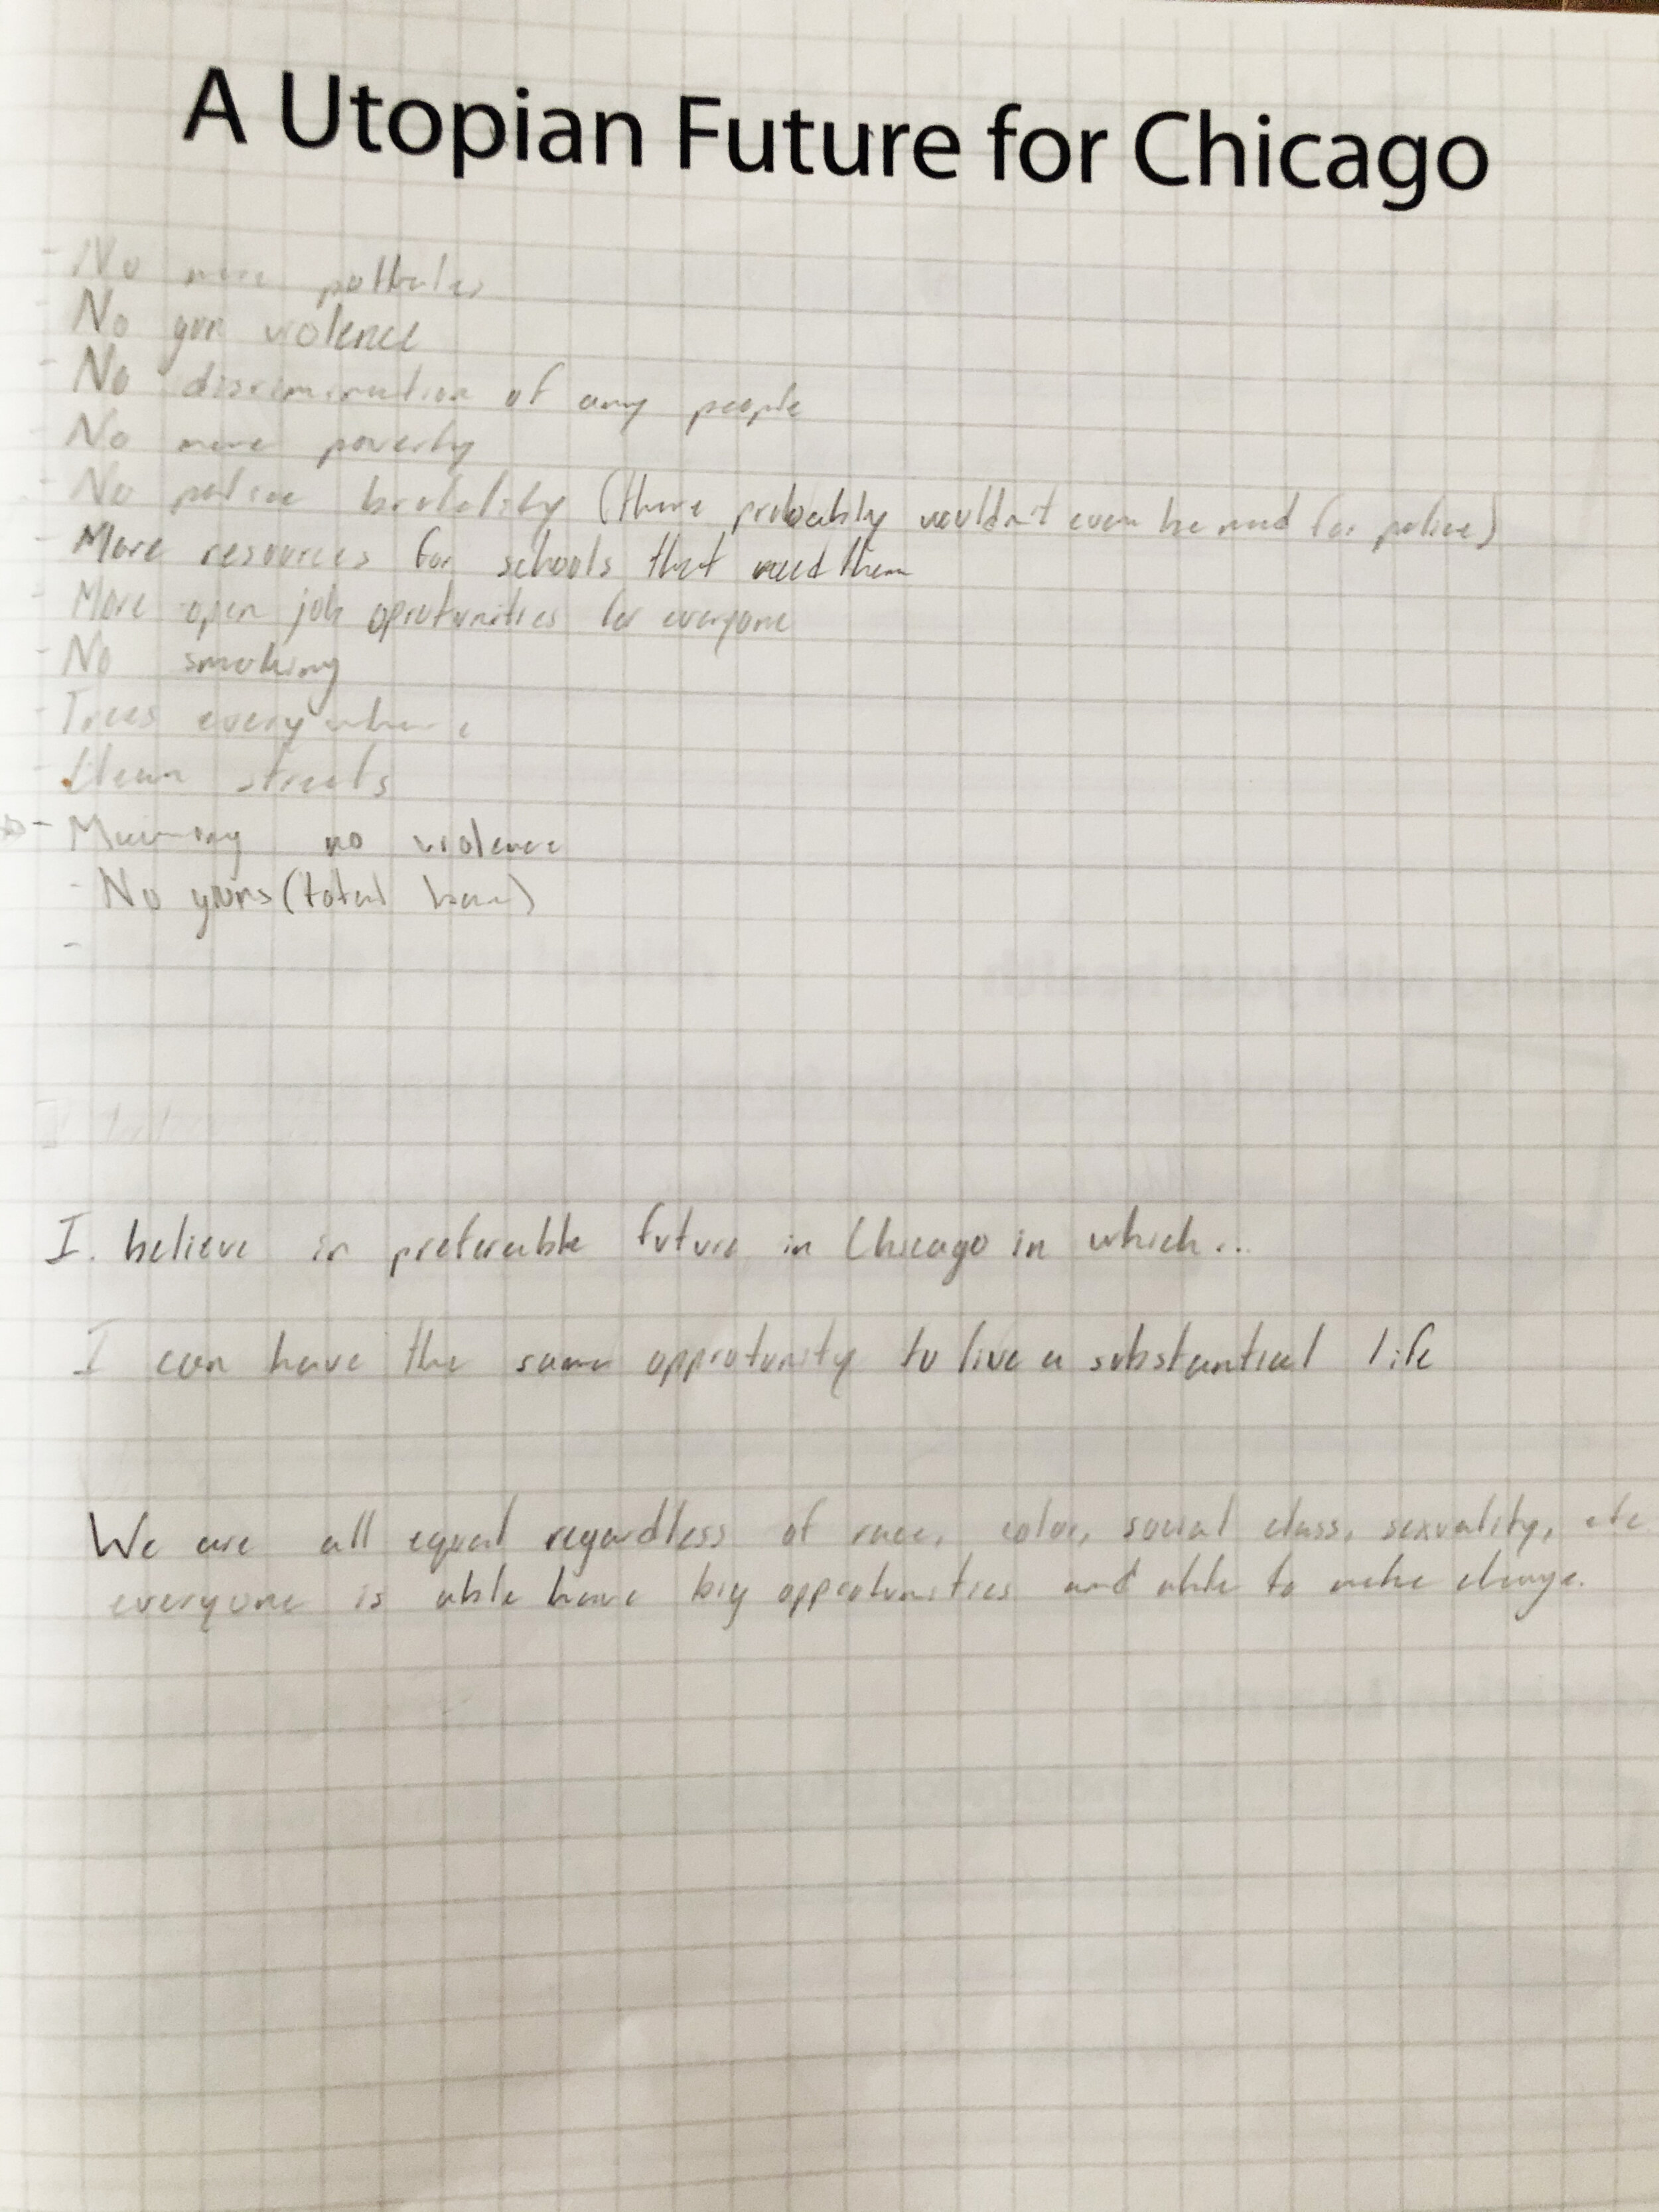 A Utopian Future for Chicago
- No more potholes
- No gun violence
- No discrimination of any people
- No more poverty
- No police brutality (there probably wouldn't even be need for police)
- More resources for schools that need them
- More open job oprotunities for everyone
- No smoking
- Trees everywhere
- Clean streets
- no violence
- No guns (total ban)
-
I believe in preferable future in Chicago in which...
I can have the same opprotunity to live a substantial life
We are all equal regardless of race, color, social class, sexuality, etc
everyone is able have big opprotunities and able to make change.